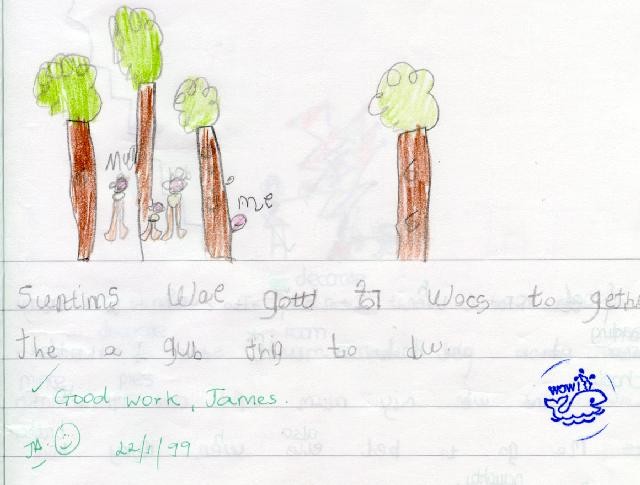 Mum
me
Suntims Wae gott to wocs to geth
the a gub thg to du.
Good work, James.
JA. 22/1/99
wow!!